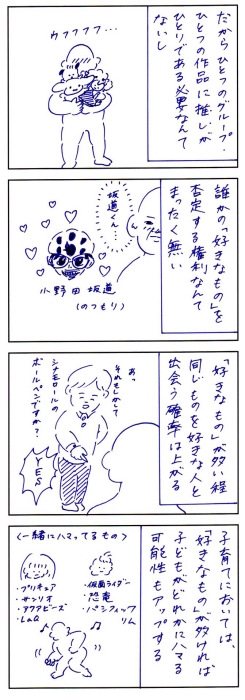 だからひとつのグループ・
ひとつの作品に推しが
ひとりである必要なんて
ないし
ウフフフフ…
誰かの「好きなもの」を
否定する権利なんて
まったく無い
坂道くん…
小野田坂道
(のつもり)
「好きなもの」が多い程
同じものを好きな人と
出会う確率は上がる
あっ
それもしかして
シナモロールの
ボールペンですか?
YES
子育てにおいては、
「好きなもの」が多ければ
子どもがどれかにハマる
可能性もアップする
〈一緒にハマってるもの〉
・プリキュア
・サンリオ
・アクアビーズ
・LaQ
・仮面ライダー
・恐竜
・パシフィック
リム